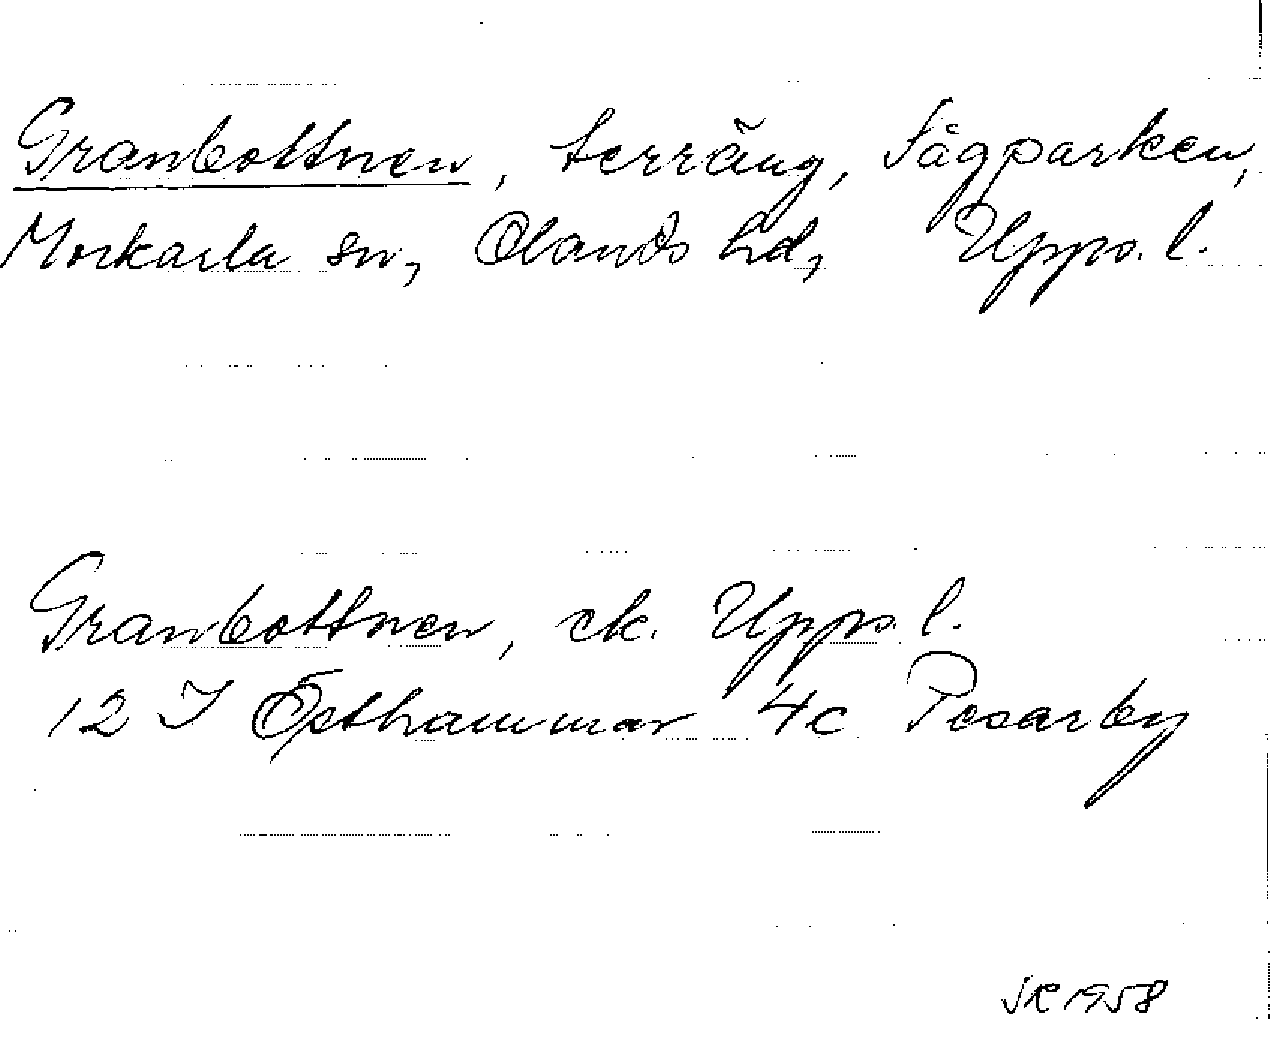 Granbottnen, terräng, Fågparken,
Morkarla sn, Olands hd, Upps. l.
Granbottnen, ek. Upps. l.
12 I Östhammar 4c Pesarby
JR 1958